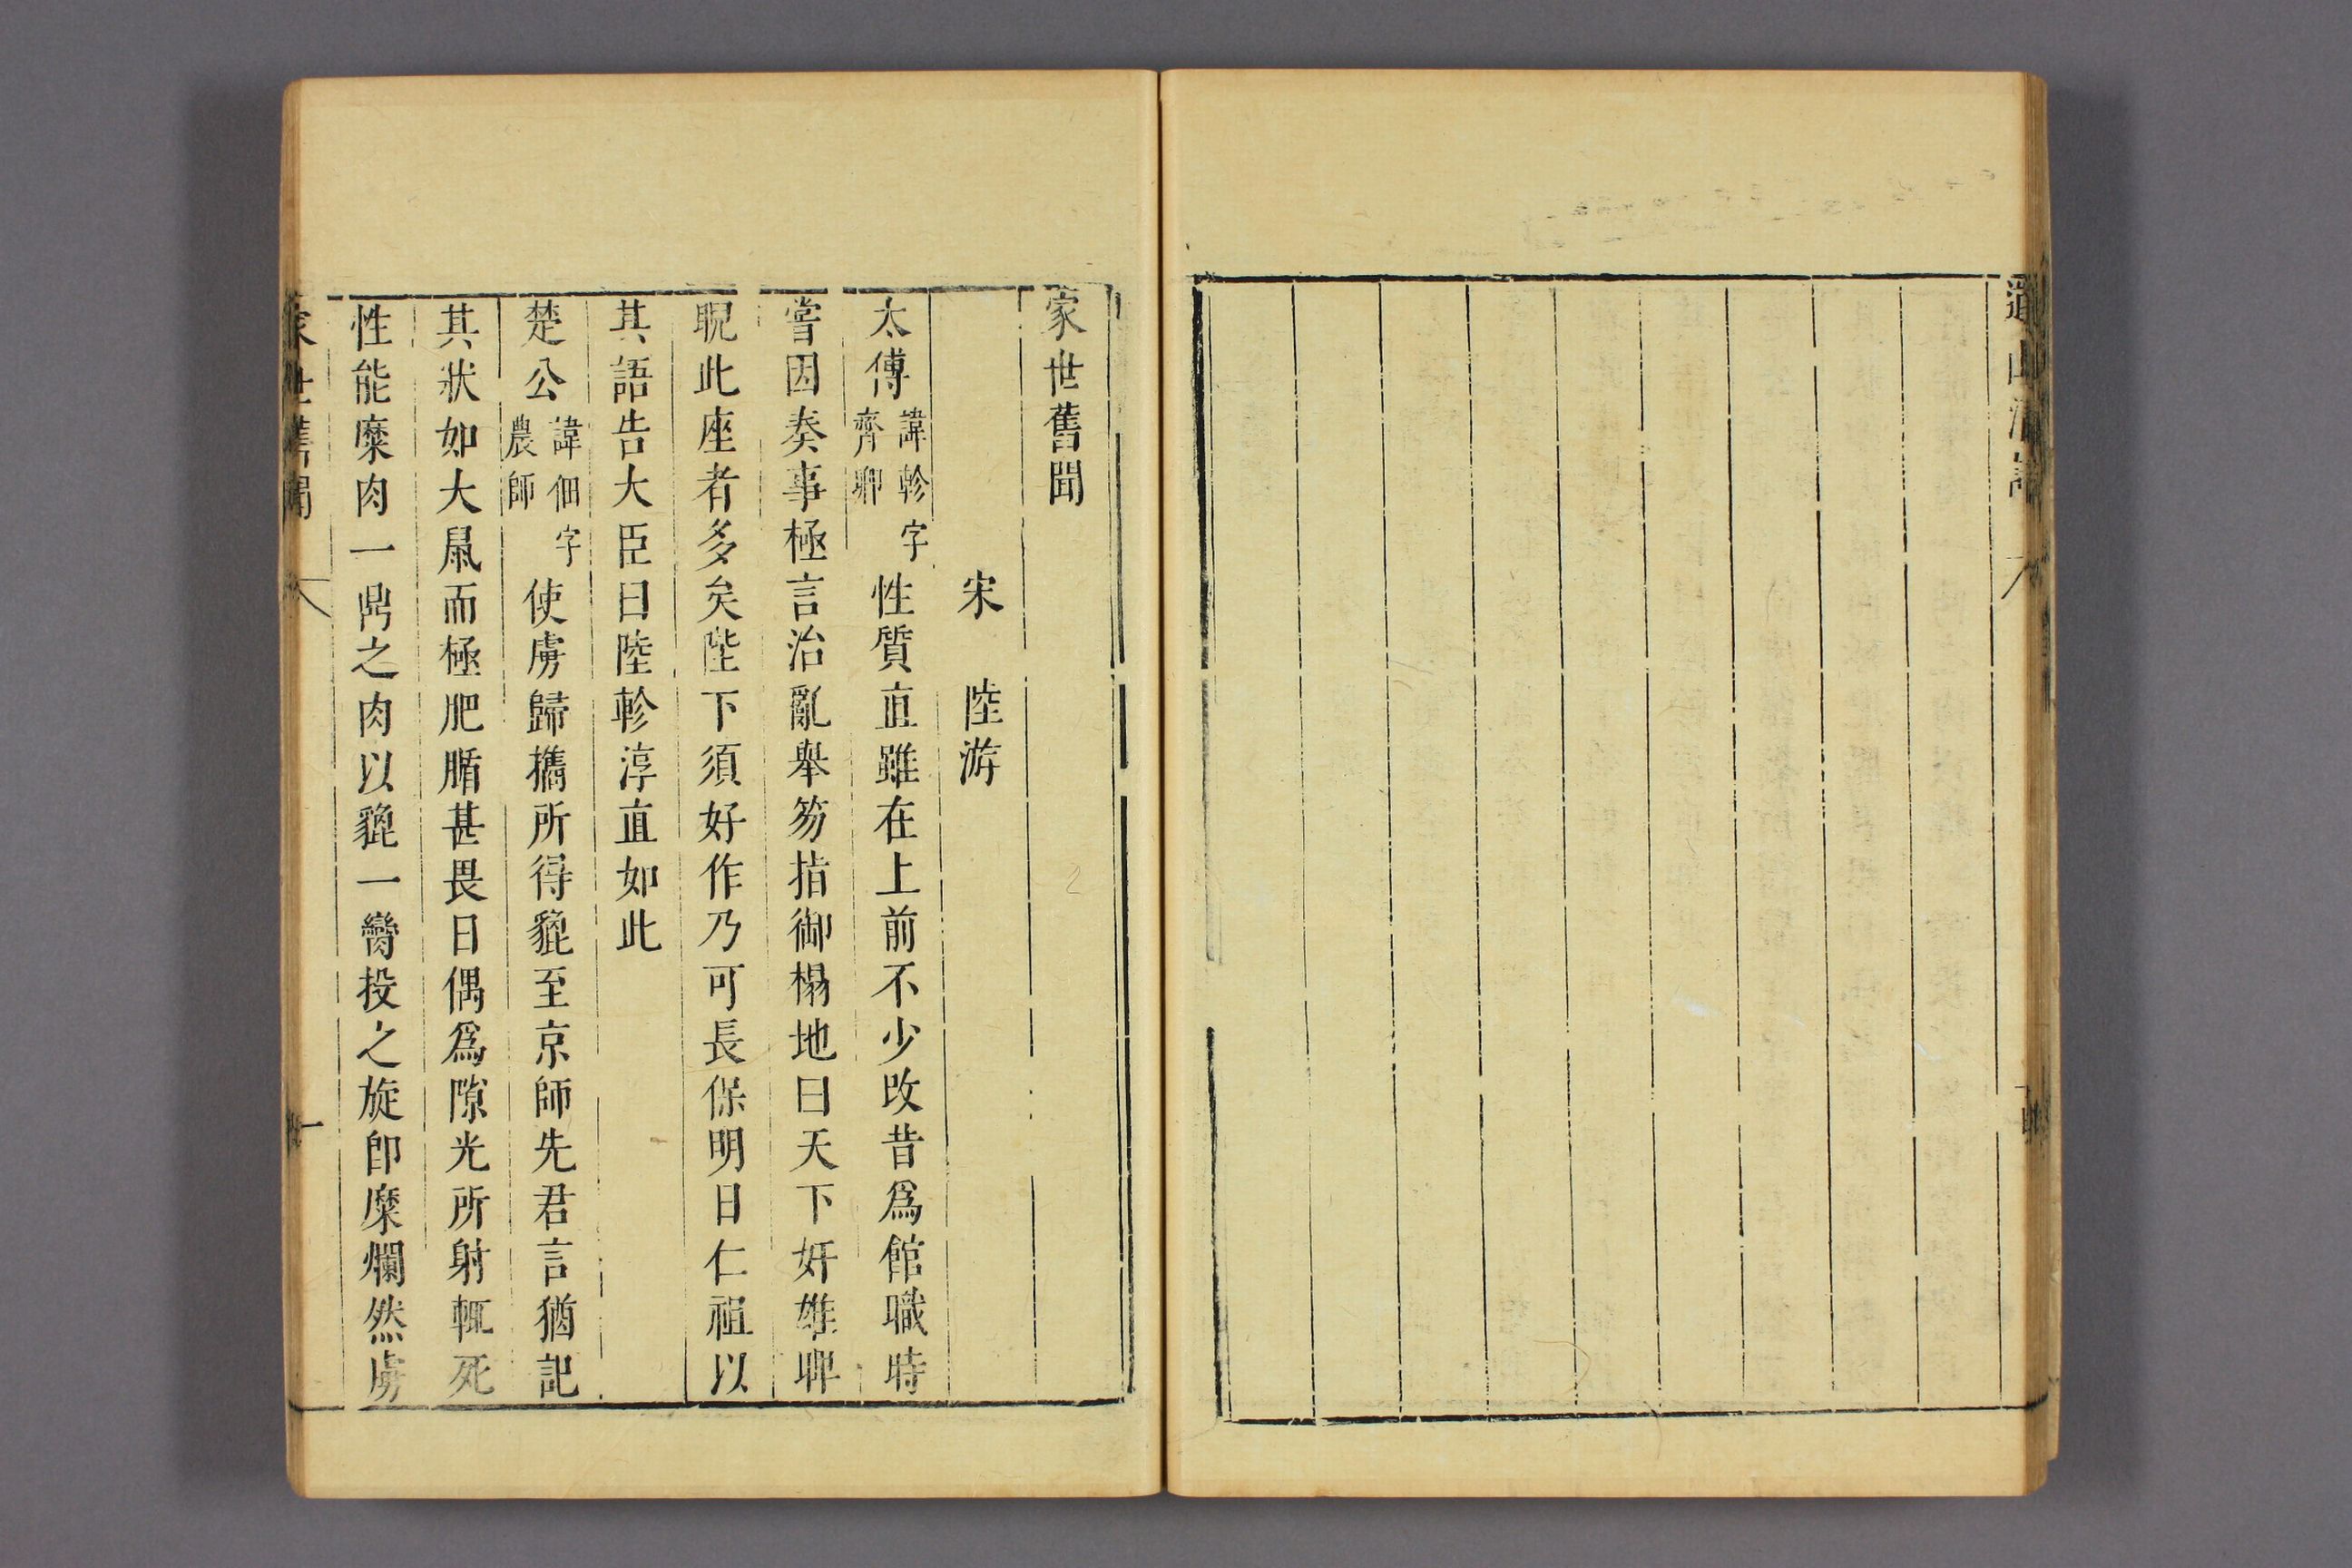 道山清話
家世舊聞
宋　陸游
太傅諱軫字齊卿性質直雖在上前不少改昔爲館職時
嘗因奏事極言治亂舉笏指御榻地曰天下奸雄睥
睨此座者多矣陛下須好作乃可長保明日仁祖以
其語告大臣曰陸軫淳直如此
楚公諱佃字農師使虜歸攜所得貔至京師先君言猶記
其狀如大鼠而極肥腯甚畏日偶爲隙光所射輒死
性能糜肉一鼎之肉以貔一臠投之旋卽糜爛然虜
家世舊聞
一